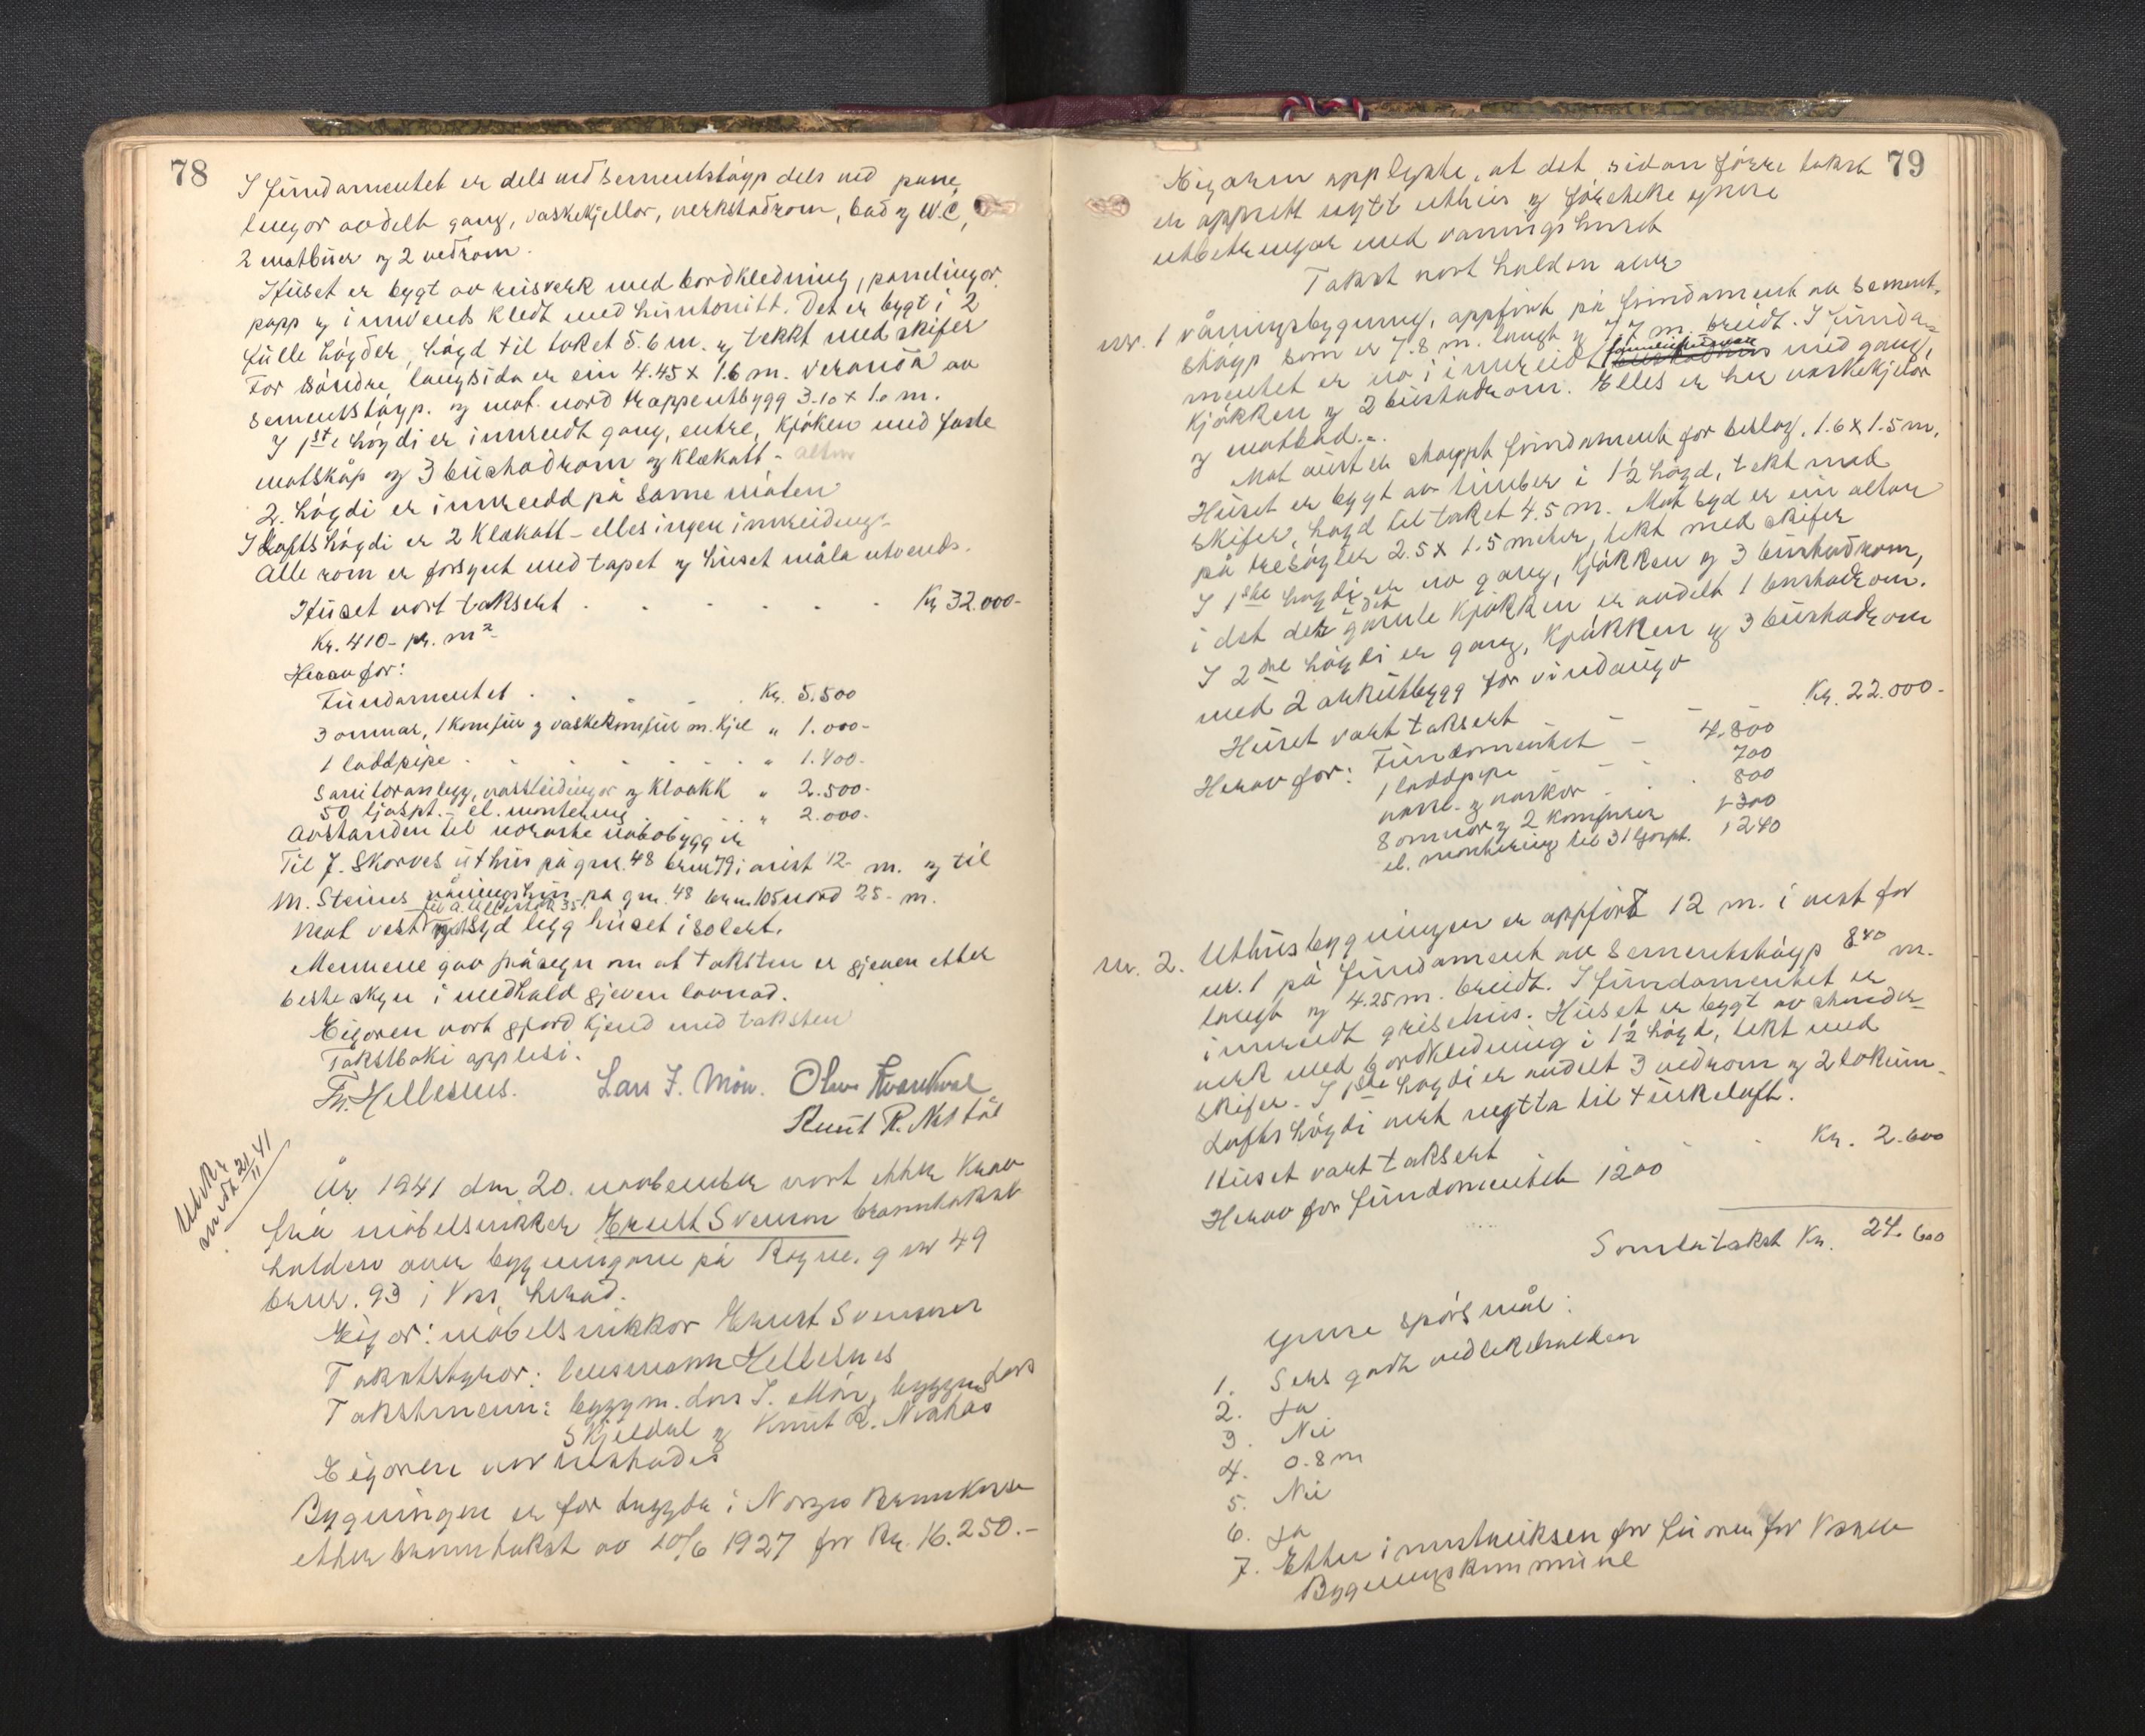 78
I fundamentet er dels med sementstøyp dels med pane
lingor avdelt gang, vaskekjellar, verkstadrom, bad og W.C,
2 matbuer og 2 vedrom.
Huset er bygt av reisverk med bordkledning, panelingor
papp og innvends kledt med huntonitt. Det er bygt i 2
fulle høgder, høgd til taket 5.6 m. og tekkt med skifer
For søndre langsida er ein 4.45 x 1.6 m. veranda av
sementstøyp. og mot nord trappeutbygg 3.10 x 1.0 m.
I 1ste høgdi er innreidt gang, entre, kjøken med faste
matskåp og 3 bustadrom og klækott -
2. høgdi er innreidd på same måten
I Loftshøgdi er 2 klækott - elles ingen innreidings-
Alle rom er forsynt med tapet og huset måla utvends.
Huset vart taksert . . . . . . Kr 32.000-
Kr. 410- pr. m2-
Herav for:
Fundamentet . . . . Kr. 5.500
3 omnar, 1 komfur og vaskekomfur m. kjel " 1.000-
1 laddpipe . . . . . . " 1.400-
Sanitæranlegg, vassleidingor og kloakk " 2.500-
50 ljospt. - el. montering . . . " 2.000-
Avstanden til næraste nabobygg er
Til J. Skorves uthus på gnr. 48 brnr 79 i aust 12- m. og til
M. Steines våningshus på gnr. 48 brnr. 105 nord 25- m.
Mot vest og syd ligg huset isolert.
Mennene gav påsegn om at taksten er gjeven etter
beste skyn i medhald gjeven lovnad.
Eigaren vart gjord kjend med taksten
Takstboki opplesi.
Fr. Hellesnes. Lars J. Møn. Olav Kvarekval
Knut R. Nestås
Utskr.
sendt 21/11 41
År 1941 den 20. november vart etter krav
frå møbelsnikker Ernst Svenson branntakst
halden over bygningane på Rogne. gnr 49
brnr. 93 i Voss herad.
Eigar: møbelsnikkar Ernst Svenson
Takststyrar: lensmann Hellesnes
Takstmenn: byggm. Lars J. Møn, byggm Lars
Skjeldal og Knut R. Nestås
Eigaren var tilstades
Bygningen er før trygda i Norges Brannkasse
etter branntakst av 20/6 1927 for Kr. 16.250.-
79
Eigaren opplyste, at det sidan førre takst
er oppsett nytt uthus og føreteke ymse
utbetringar med våningshuset
Takst vart halden over
nr. 1 våningsbygning, oppført på fundament av sement-
støyp som er 7.8 m. langt og 7.7 m. breidt. I funda-
mentet er no i innreidt med gang,
kjøkken og 2 bustadrom. Elles er her vaskekjelar
og matbod.
Mot aust er støypt fundament for beslag. 1.6 x 1.5 m.
Huset er bygt av timber i 1½ høgd, tekt med
skifer, høgd til taket 4.5 m. Mot syd er ein altan
på tresøyler 2.5 x 1.5 meter, tekt med skifer
I 1ste høgdi er no gang, kjøkken og 3 bustadrom,
i det det gamle kjøkken er avdelt 1 bustadrom.
I 2dre høgdi er gang, kjøkken og 3 bustadrom
med 2 arkutbygg for vindaugo
Huset vart taksert - - Kr. 22.000-
Herav for: Fundamentet - 4.800
1 laddpipe - - - 700
vassl. og vaskar - . . 800
8 omnar og 2 komfurer 1300
el. montering til 31 ljospt. 1240
nr. 2. Uthusbygningen er oppført 12 m. i vest for
nr. 1 på fundament av sementstøyp 8.40 m.
langt og 4.25 m. breidt. I fundamentet er
innreidt grisehus. Huset er bygt av stender-
verk med bordkledning i 1½ høgd, tekt med
skifer. I 1ste høgdi er avdelt 3 vedrom og 2 lokum.
Loftshøgdi vert nytta til turkeloft.
Huset vart taksert . . Kr. 2.600
Herav for fundamentet 1200
Samla takst Kr. 24.600
Ymse spørsmål:
1. Sers godt vedlikehalden
2. Ja
3. Nei
4. 0.8 m
5. Nei
6. Ja
7. Etter instruksen for for Vossa
Bygningskommune